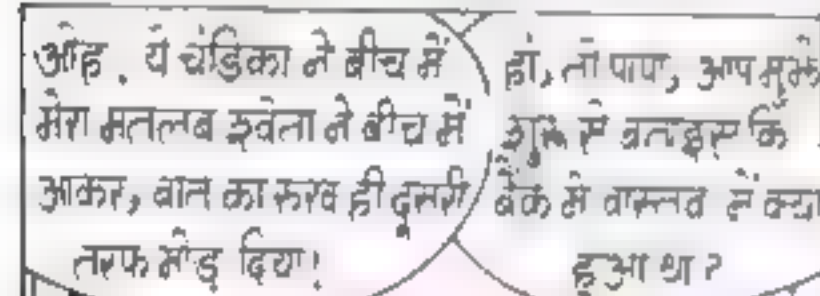 ओह. ये चंडिका ने बीच में
मेरा मतलब श्वेता ने बीच में
आकर, बात का रुख ही दूसरी
तरफ मोड़ दिया!
हां, तो पापा, आप मुझे
शुरू से बताइए कि
बैंक में वास्तव में क्या
हुआ था?